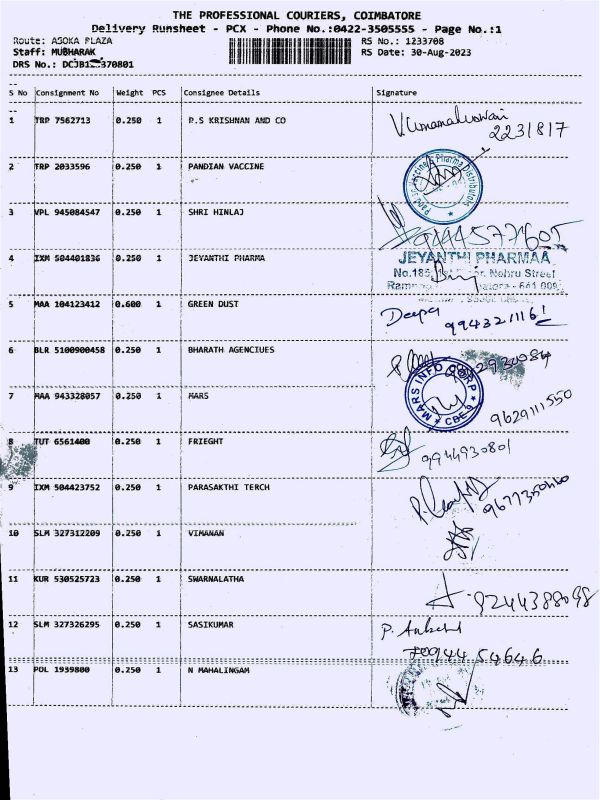 THE PROFESSIONAL COURIERS, COIMBATORE
Delivery Runsheet - PCX - Phone No.:0422-3505555 - Page No.:1
Route: ASOKA PLAZA RS No.: 1233708
Staff: MUBHARAK RS Date: 30-Aug-2023
DRS No.: 370801
S No Consignment No Weight PCS Consignee Details Signature
1 TRP 7562713 0.250 1 P.S KRISHNAN AND CO
2231817
2 TRP 2033596 0.250 1 PANDIAN VACCINE
3 VPL 945084547 0.250 1 SHRI HINLAJ
4 IXM 504401836 0.250 1 JEYANTHI PHARMA JEYANTHI PHARMAA
No.185, Nehru Street
5 MAA 104123412 0.600 1 GREEN DUST Deepa
9943211161
6 BLR 5100900458 0.250 1 BHARATH AGENCIUES
7 MAA 943328057 0.250 1 MARS MARS INFO CORP CBE-9
9629111550
8 TUT 6561400 0.250 1 FRIEGHT 9944930801
9 IXM 504423752 0.250 1 PARASAKTHI TERCH
10 SLM 327312209 0.250 1 VIMANAN
11 KUR 530525723 0.250 1 SWARNALATHA 9244388098
12 SLM 327326295 0.250 1 SASIKUMAR
13 POL 1939800 0.250 1 N MAHALINGAM